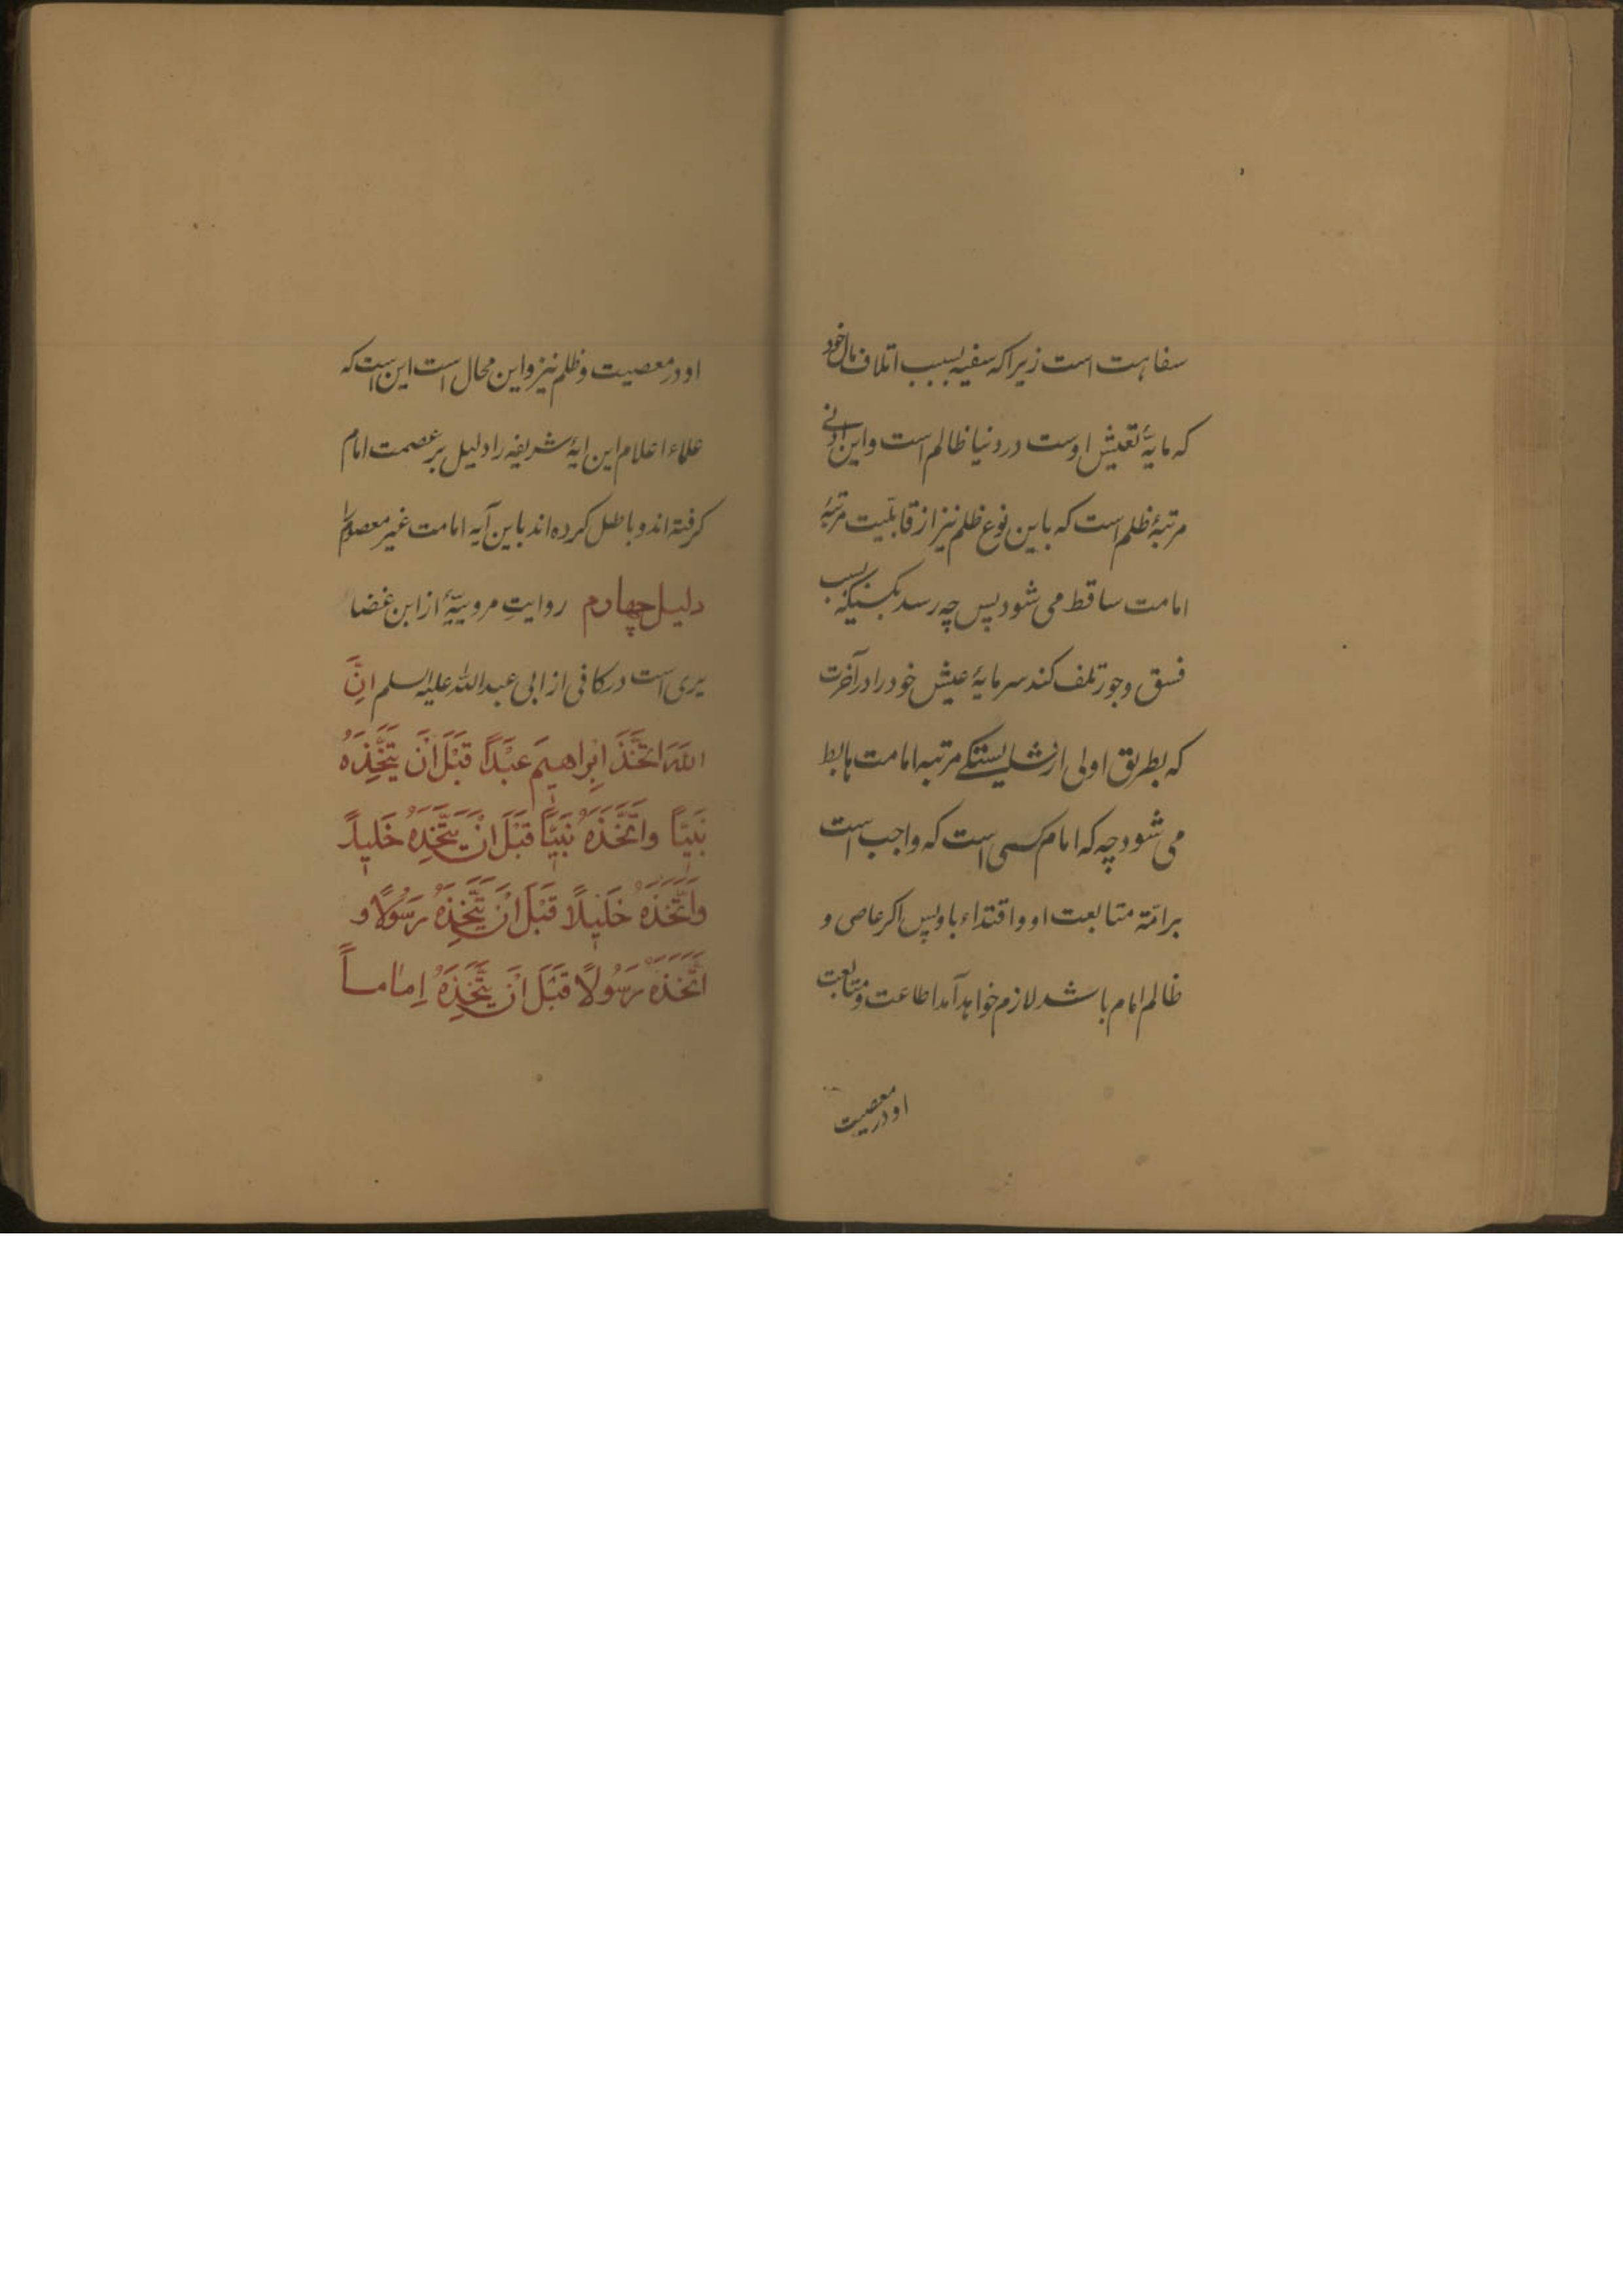 سفاهت است زیرا که سفیه بسبب اتلاف مال خود
که مایهٔ تعیش اوست در دنیا ظالم است و این ادنی
مرتبهٔ ظلم است که باین نوع ظلم نیز از قابلیت مرتبهٔ
امامت ساقط می شود پس چه رسد بکسیکه بسبب
فسق و جور تلف کند سرمایهٔ عیش خود را در آخرت
که بطریق اولی از شایستکی مرتبه امامت هابط
می شود چه که امام کسی است که واجب است
بر امّة متابعت او و اقتداء باو پس اکر عاصی و
ظالم امام باشد لازم خواهد آمد اطاعت و متابعت
او در معصیت
او در معصیت و ظلم نیز و این محال است این است که
علماء اعلام این ایهٔ شریفه را دلیل بر عصمت امام
کرفته اند و باطل کرده اند باین آیه امامت غیر معصوم را
دلیل چهارم روایتِ مرویهٔ از ابن غضا
یری است در کافی از ابی عبدالله علیه السلم انَّ
اللهَ اتَّخَذَ اِبراهیمَ عَبْدًا قَبْلَ اَنْ یَتَّخِذَهُ
نَبیًّا وَ اتَّخَذَهُ نَبیًّا قَبْلَ اَنْ یَتَّخِذَهُ خَلیلًا
وَ اتَّخَذَهُ خَلیلًا قَبْلَ اَنْ یَتَّخِذَهُ رَسُولًا و
اتَّخَذَهُ رَسُولًا قَبْلَ اَنْ یَتَّخِذَهُ اِمامًا